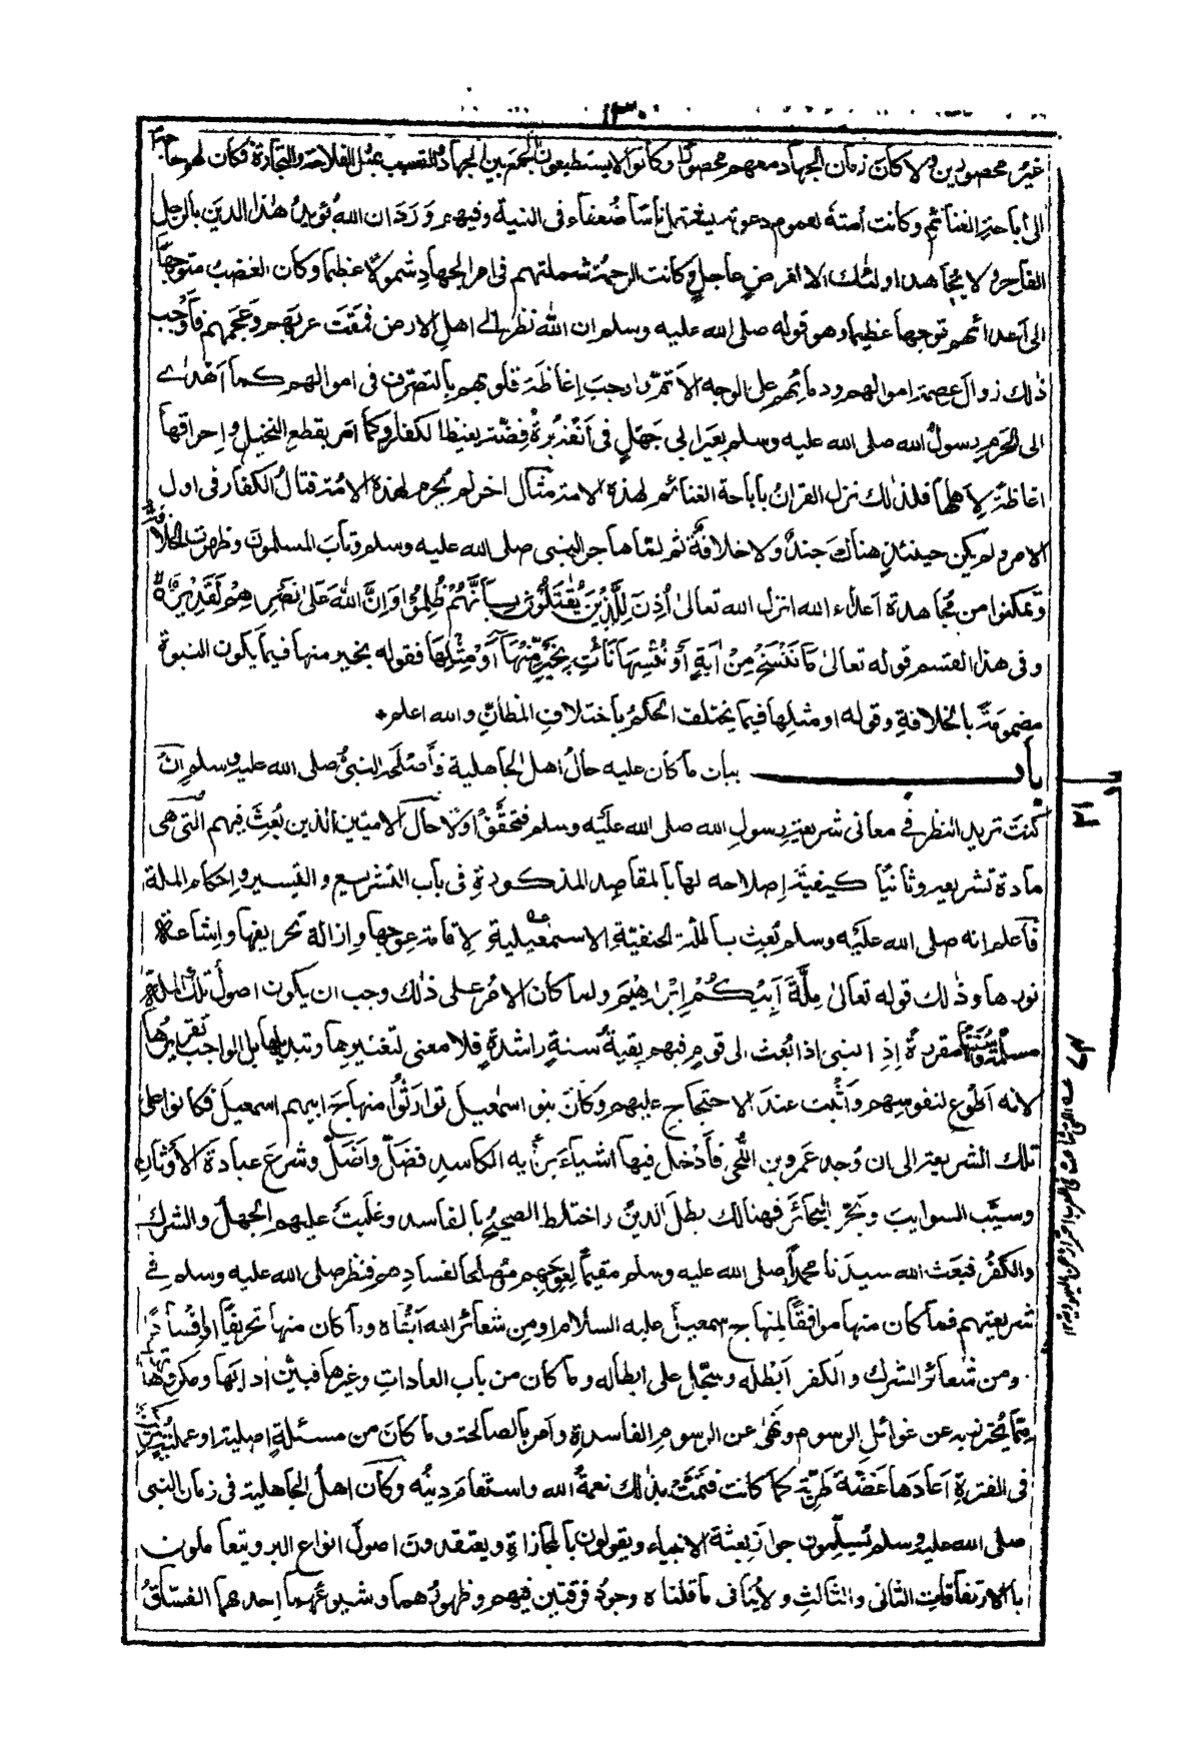 ١٣٠
غير محصورين ولا كان زمان الجهاد معهم محصورا وكانوا لا يستطيعون الجمع بين الجهاد والتسبب بمثل الفلاحة والتجارة فكان لهم حاجة
الى اباحة الغنائم وكانت أمته لعموم دعوته يبلغها ناسا ضعفاء فى النية وفيهم وَرَدَ ان الله يؤيد هذا الدين بالرجل
الفاجر ولا يجاهد اولئك الا لغرض عاجل وكانت الرحمة شملتهم فى امر الجهاد شمولا عظيما وكان الغضب متوجها
الى أعدائهم توجها عظيما وهو قوله صلى الله عليه وسلم ان الله نظر الى اهل الارض فمَقَتَ عربهم وعَجَمهم فأوجب
ذلك زوال عصمة اموالهم ودمائهم على الوجه الأتمّ واوجب إغاظة قلوبهم بالتصرف فى اموالهم كما أهدى
الى الحرم رسول الله صلى الله عليه وسلم بعير ابى جهل فى أنفه بُرةُ فِضّة يغيظ الكفار وكما امر بقطع النخيل وإحراقها
اغاظة لاهلها فلذلك نزل القرآن بإباحة الغنائم لهذه الامة مثال آخر لم يُحرم لهذه الامة قتال الكفار فى اول
الامر ولم يكن حينئذ هناك جند ولا خلافة ثم لما هاجر النبى صلى الله عليه وسلم وثاب المسلمون وظهرت الخلافة
وتمكنوا من مجاهدة أعداء الله انزل الله تعالى أُذِنَ لِلَّذِينَ يُقٰتَلُونَ بِأَنَّهُمْ ظُلِمُوا وَإِنَّ اللَّهَ عَلَى نَصْرِهِمْ لَقَدِيرٌ
وفى هذا القسم قوله تعالى مَا نَنْسَخْ مِنْ آيَةٍ أَوْ نُنْسِهَا نَأْتِ بِخَيْرٍ مِنْهَا أَوْ مِثْلِهَا فقوله بخير منها فيما يكون النبوة
مضمومة بالخلافة وقوله او مثلها فيما يختلف الحكم باختلاف المظانّ والله اعلم
باب بيان ما كان عليه حال اهل الجاهلية فأصلحه النبىُّ صلى الله عليه وسلم ان
كنت تريد النظر فى معانى شريعة رسول الله صلى الله عليه وسلم فتحقَّقْ اولا حال الاميين الذين بُعِثَ فيهم التى هى
مادة تشريعه وثانيا كيفية إصلاحه لها بالمقاصد المذكورة فى باب التشريع والتيسير واحكام الملة
فاعلم انه صلى الله عليه وسلم بُعِث بالملة الحنيفية الاسمٰعيلية لاقامة عوجها وازالة تحريفها واشاعة
نورها وذلك قوله تعالى مِلَّةَ أَبِيكُمْ إِبْرَاهِيمَ ولما كان الامر على ذلك وجب ان يكون اصول تلك الملة
مسلّمة وسُنَّتُها مقررة إذِ النبى اذا بُعث الى قوم فيهم بقيةُ سنةٍ راشدةٍ فلا معنى لتغييرها وتبديلها بل الواجب تقريرُها
لانه أَطْوَع لنفوسهم وأثبت عند الاحتجاج عليهم وكان بنو اسمٰعيل توارثوا منهاج ابيهم اسمعيل فكانوا على
تلك الشريعة الى ان وُجد عمرو بن لُحى فأَدْخَل فيها اشياءَ برأيه الكاسد فضَلَّ وأضلّ وشرع عبادة الاوثان
وسيَّب السوايب وبحّر البحائر فهنالك بطل الدينُ واختلط الصحيحُ بالفاسد وغلبت عليهم الجهلُ والشرك
والكفرُ فبعث الله سيدنا محمداً صلى الله عليه وسلم مقيماً لِعِوجهم ومُصلحا لفسادهم فنظر صلى الله عليه وسلم فى
شريعتهم فما كان منها موافقًا لمنهاج اسمعيل عليه السلام او من شعائر الله أبقاه وما كان منها تحريفًا او إفسادا
او من شعائر الشرك والكفر أبطله وسجّل على ابطاله وما كان من باب العادات وغيرها فبيّن آدابها ومكروهاتها
مِمَّا يُحترز به عن غوائل الرسوم ونهى عن الرسوم الفاسدة وامر بالصالحة وما كان من مسئلة اصلية او عملية تُركت
فى الفترة أعادها غضّة طريّة كما كانت فتمّت بذلك نعمةُ الله واستقام دينُه وكان اهلُ الجاهلية فى زمان النبى
صلى الله عليه وسلم يُسلّمون جواز بعثة الانبياء ويقولون بالمجازاة ويعتقدون اصول انواع البر ويتعاملون
بالارتفاقات الثانى والثالث ولا يُنافى ما قلناه وجودُ فرقتين فيهم وظهورُهما وشيوعُهما إحداهما الفسّاقُ